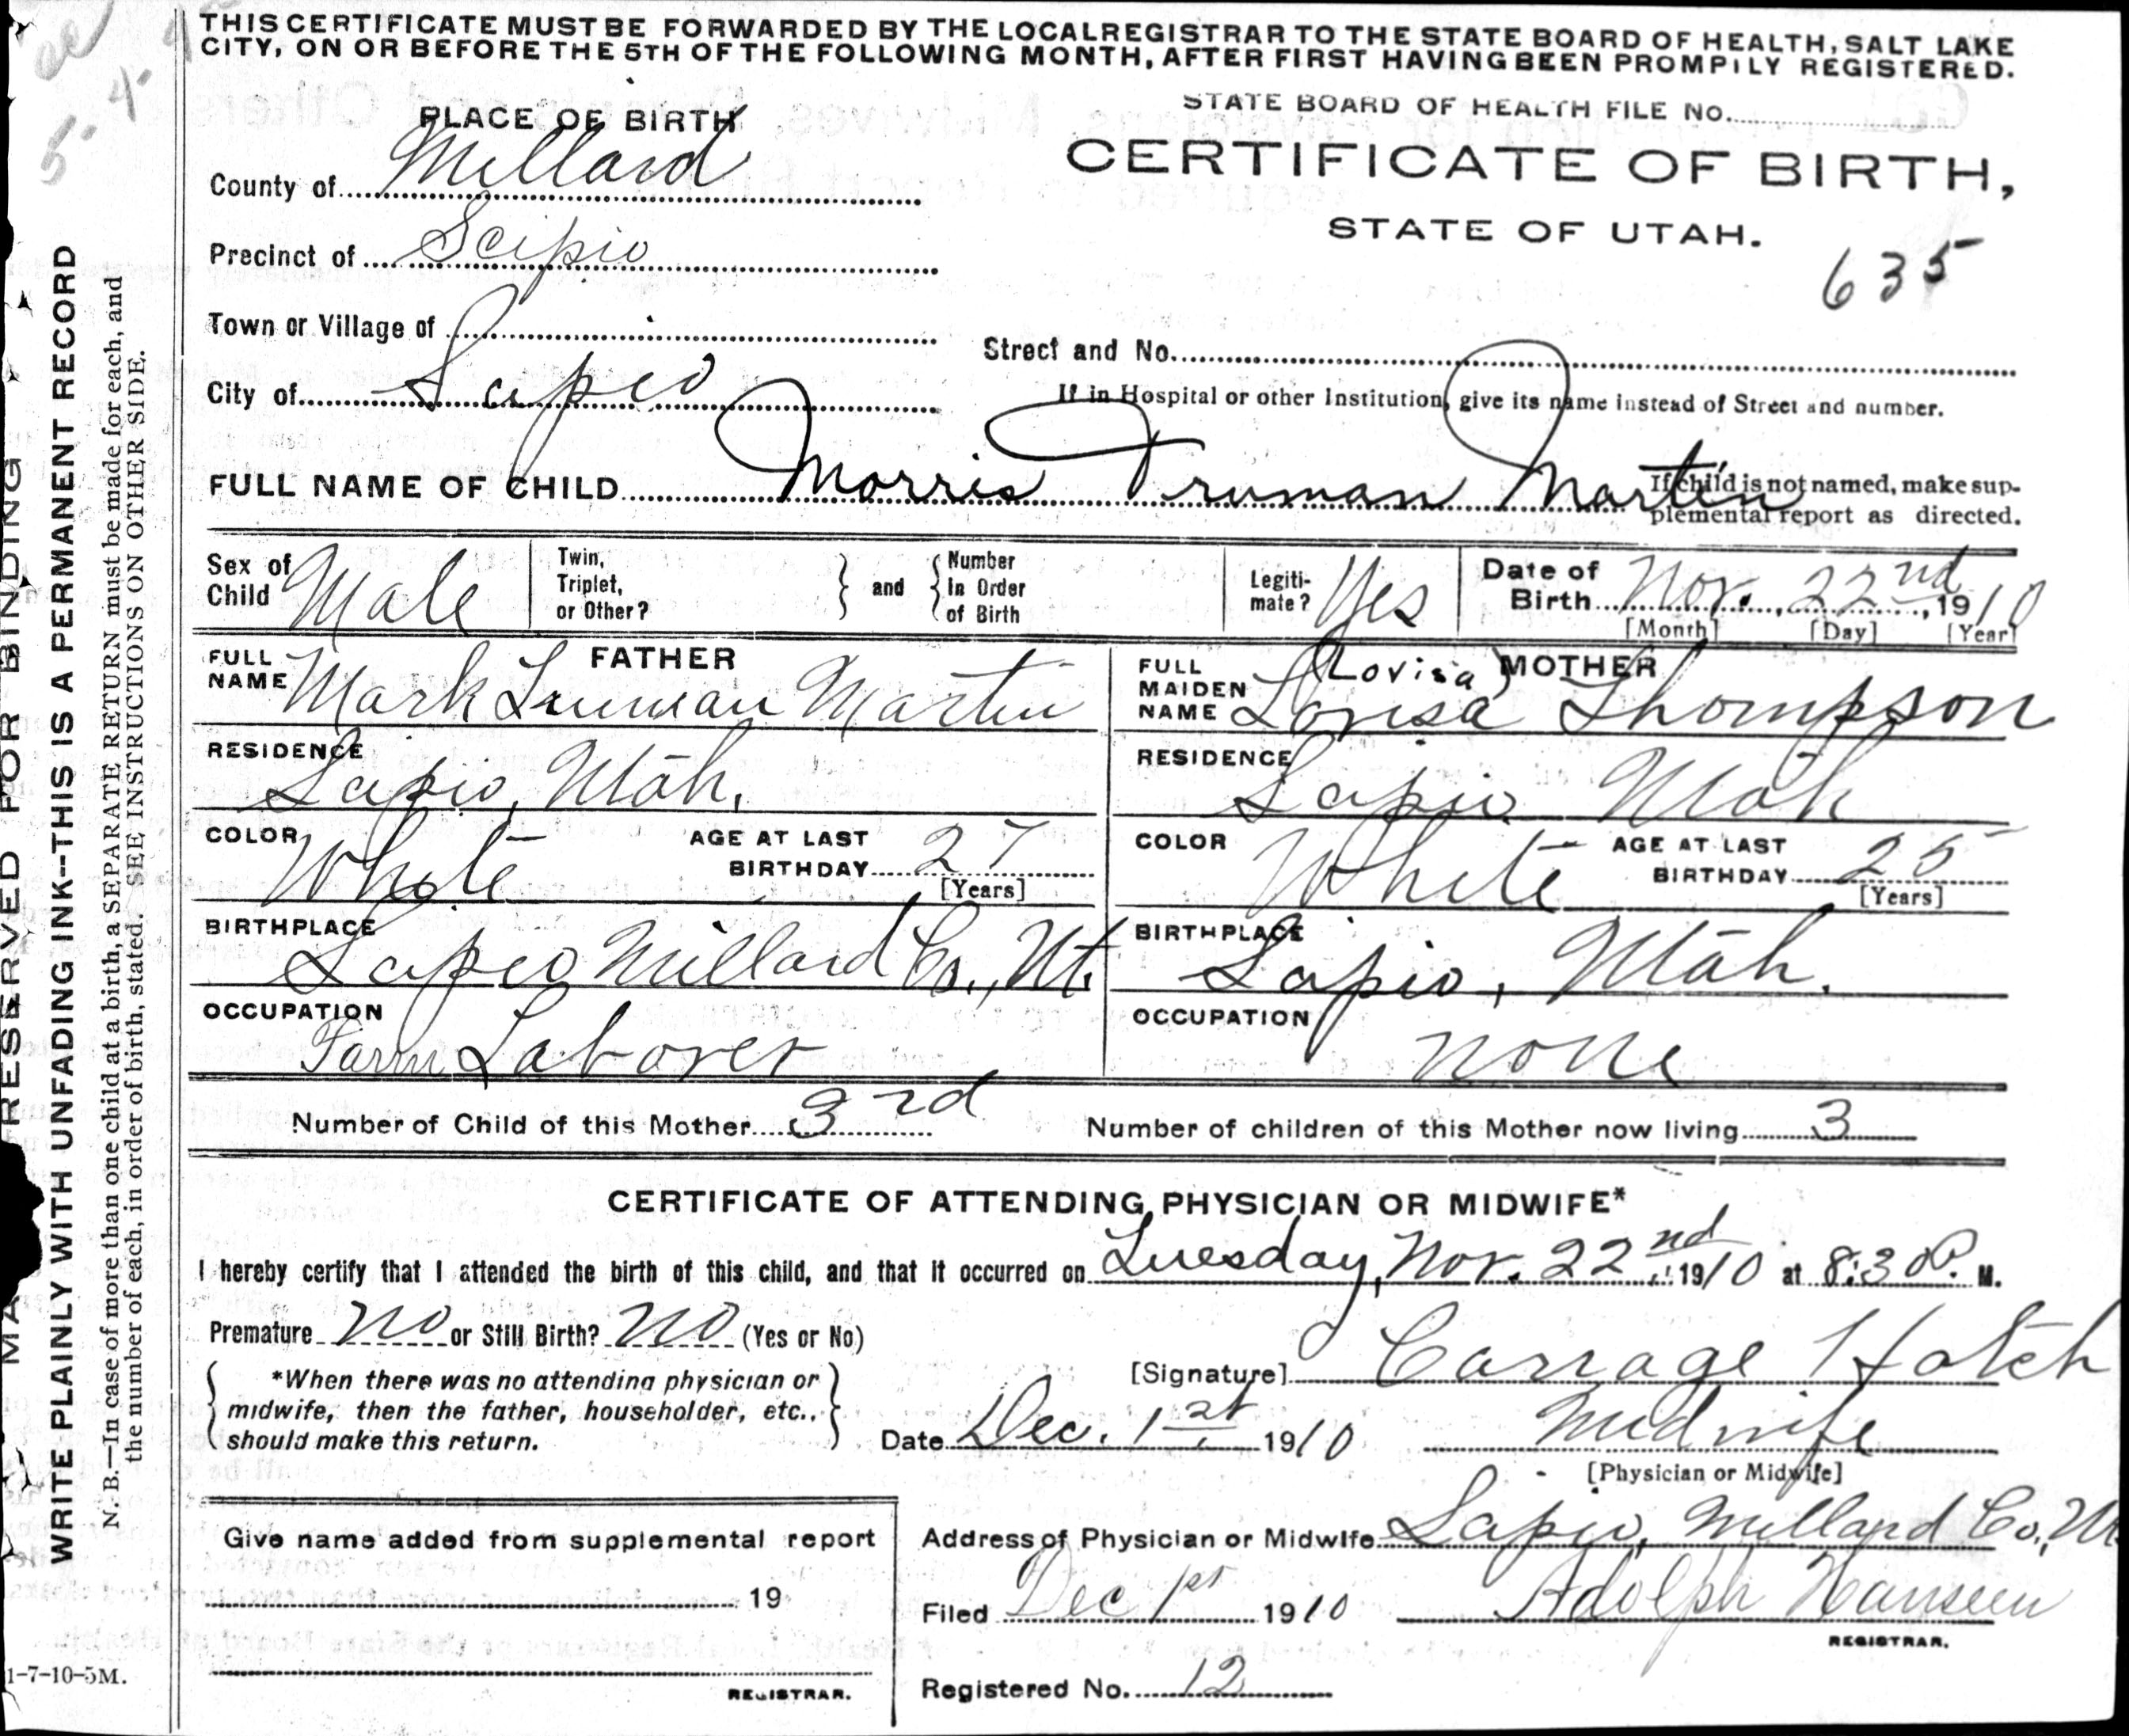 THIS CERTIFICATE MUST BE FORWARDED BY THE LOCAL REGISTRAR TO THE STATE BOARD OF HEALTH, SALT LAKE
CITY, ON OR BEFORE THE 5TH OF THE FOLLOWING MONTH, AFTER FIRST HAVING BEEN PROMPILY REGISTERED.
4
5
PLACE OF BIRTH
STATE BOARD OF HEALTH FILE NO.
CERTIFICATE OF BIRTH,
County of Millard
STATE OF UTAH.
Precinct of Scipio
635
Town or Village of
Street and No.
City of Scipio
If in Hospital or other Institution, give its name instead of Street and number.
FULL NAME OF CHILD Morris Truman Martin
If child is not named, make sup-
plemental report as directed.
Sex of Child Male
Twin, Triplet, or Other? } and { Number In Order of Birth
Legiti-mate? Yes
Date of Birth Nov. 22nd, 1910
[Month] [Day] [Year]
FATHER
FULL NAME Mark Truman Martin
RESIDENCE
Scipio, Utah.
COLOR White AGE AT LAST BIRTHDAY 27
[Years]
BIRTHPLACE
Scipio Millard Co., Ut.
OCCUPATION
Farm Laborer
(Lovisa) MOTHER
FULL MAIDEN NAME Lovisa Thompson
RESIDENCE
Scipio Utah
COLOR White AGE AT LAST BIRTHDAY 25
[Years]
BIRTHPLACE
Scipio, Utah.
OCCUPATION
none
Number of Child of this Mother 3rd
Number of children of this Mother now living 3
CERTIFICATE OF ATTENDING PHYSICIAN OR MIDWIFE*
I hereby certify that I attended the birth of this child, and that it occurred on Tuesday, Nov. 22nd, 1910 at 8:30 P. M.
Premature no or Still Birth? no (Yes or No)
*When there was no attending physician or
midwife, then the father, householder, etc.,
should make this return.
[Signature] Hatch
Date Dec. 1st 1910 Midwife
[Physician or Midwife]
Give name added from supplemental report
19
REGISTRAR.
Address of Physician or Midwife Scipio, Millard Co., Ut
Filed Dec 1st 1910 Adolph Hanseen
REGISTRAR.
Registered No. 12
MARGIN RESERVED FOR BINDING
WRITE PLAINLY WITH UNFADING INK--THIS IS A PERMANENT RECORD
N. B.—In case of more than one child at a birth, a SEPARATE RETURN must be made for each, and
the number of each, in order of birth, stated. SEE INSTRUCTIONS ON OTHER SIDE.
1-7-10-5M.